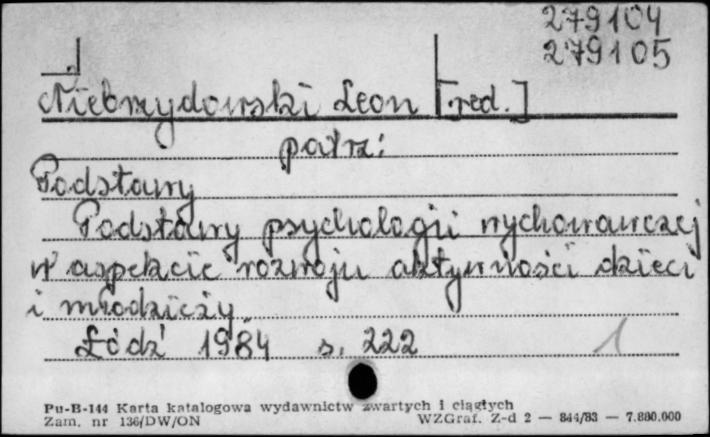 279104
279105
Niebrzydowski Leon [red.]
patrz:
Podstawy
Podstawy psychologii wychowawczej
w aspekcie rozwoju aktywności dzieci
i młodzieży.
Łódź 1984 s. 222
1
Pu-B-144 Karta katalogowa wydawnictw zwartych i ciągłych
Zam. nr 136/DW/ON WZGraf. Z-d 2 — 844/83 — 7.880.000